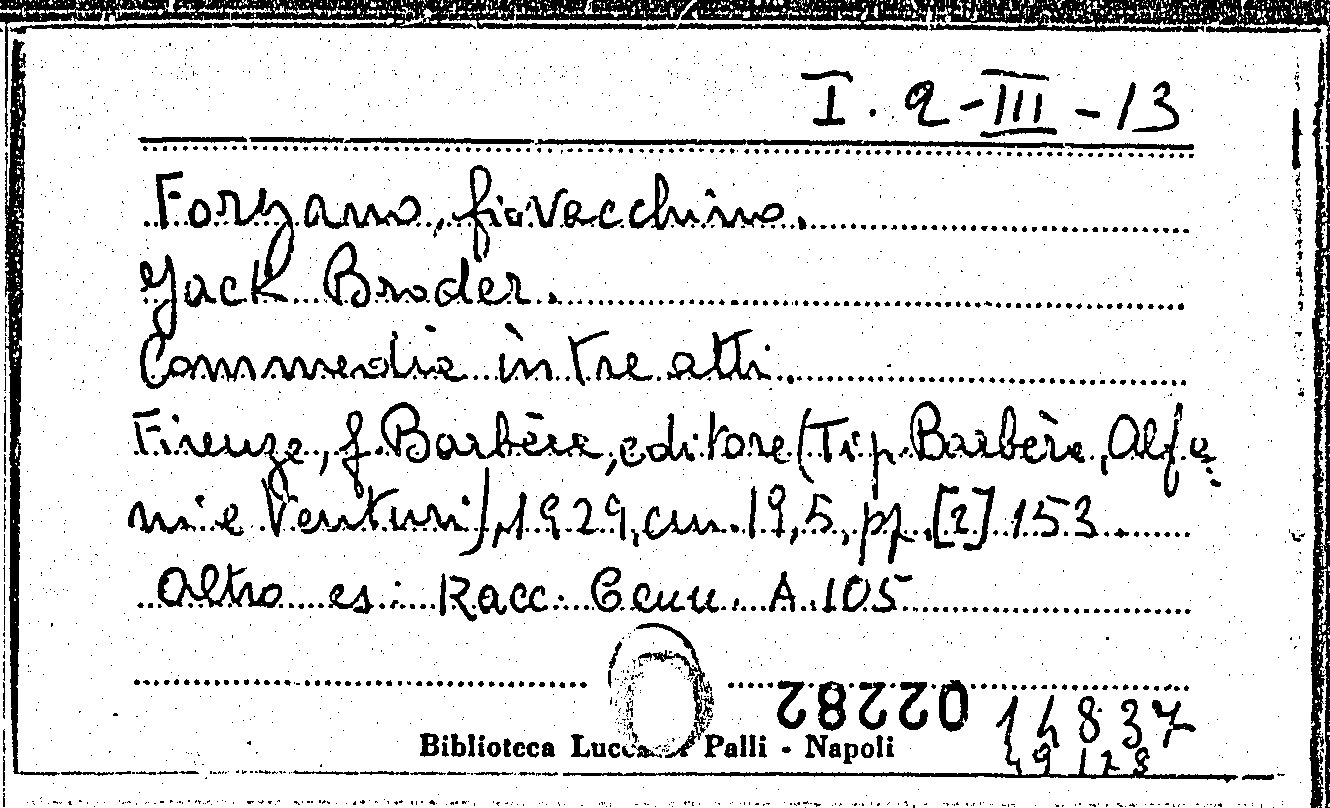 I. 2-III-13
Forzano, Giovacchino.
Jack Broder.
Commedia in tre atti.
Firenze, G. Barbèra, editore (Tip. Barbèra, Alfa
ni e Venturi), 1929, cm. 19,5, pp. [2] 153.
Altro es: Racc. Cenn. A. 105
02282
14837
49128
Biblioteca Palli - Napoli